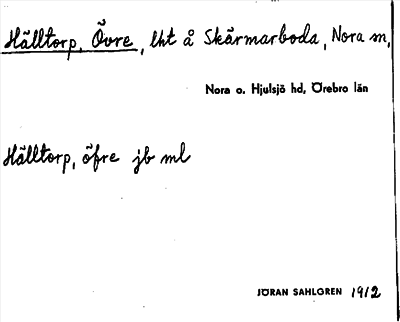 Hälltorp, Övre, lht å Skärmarboda, Nora sn,
Nora o. Hjulsjö hd, Örebro län
Hälltorp, öfre jb ml
JÖRAN SAHLGREN 1912